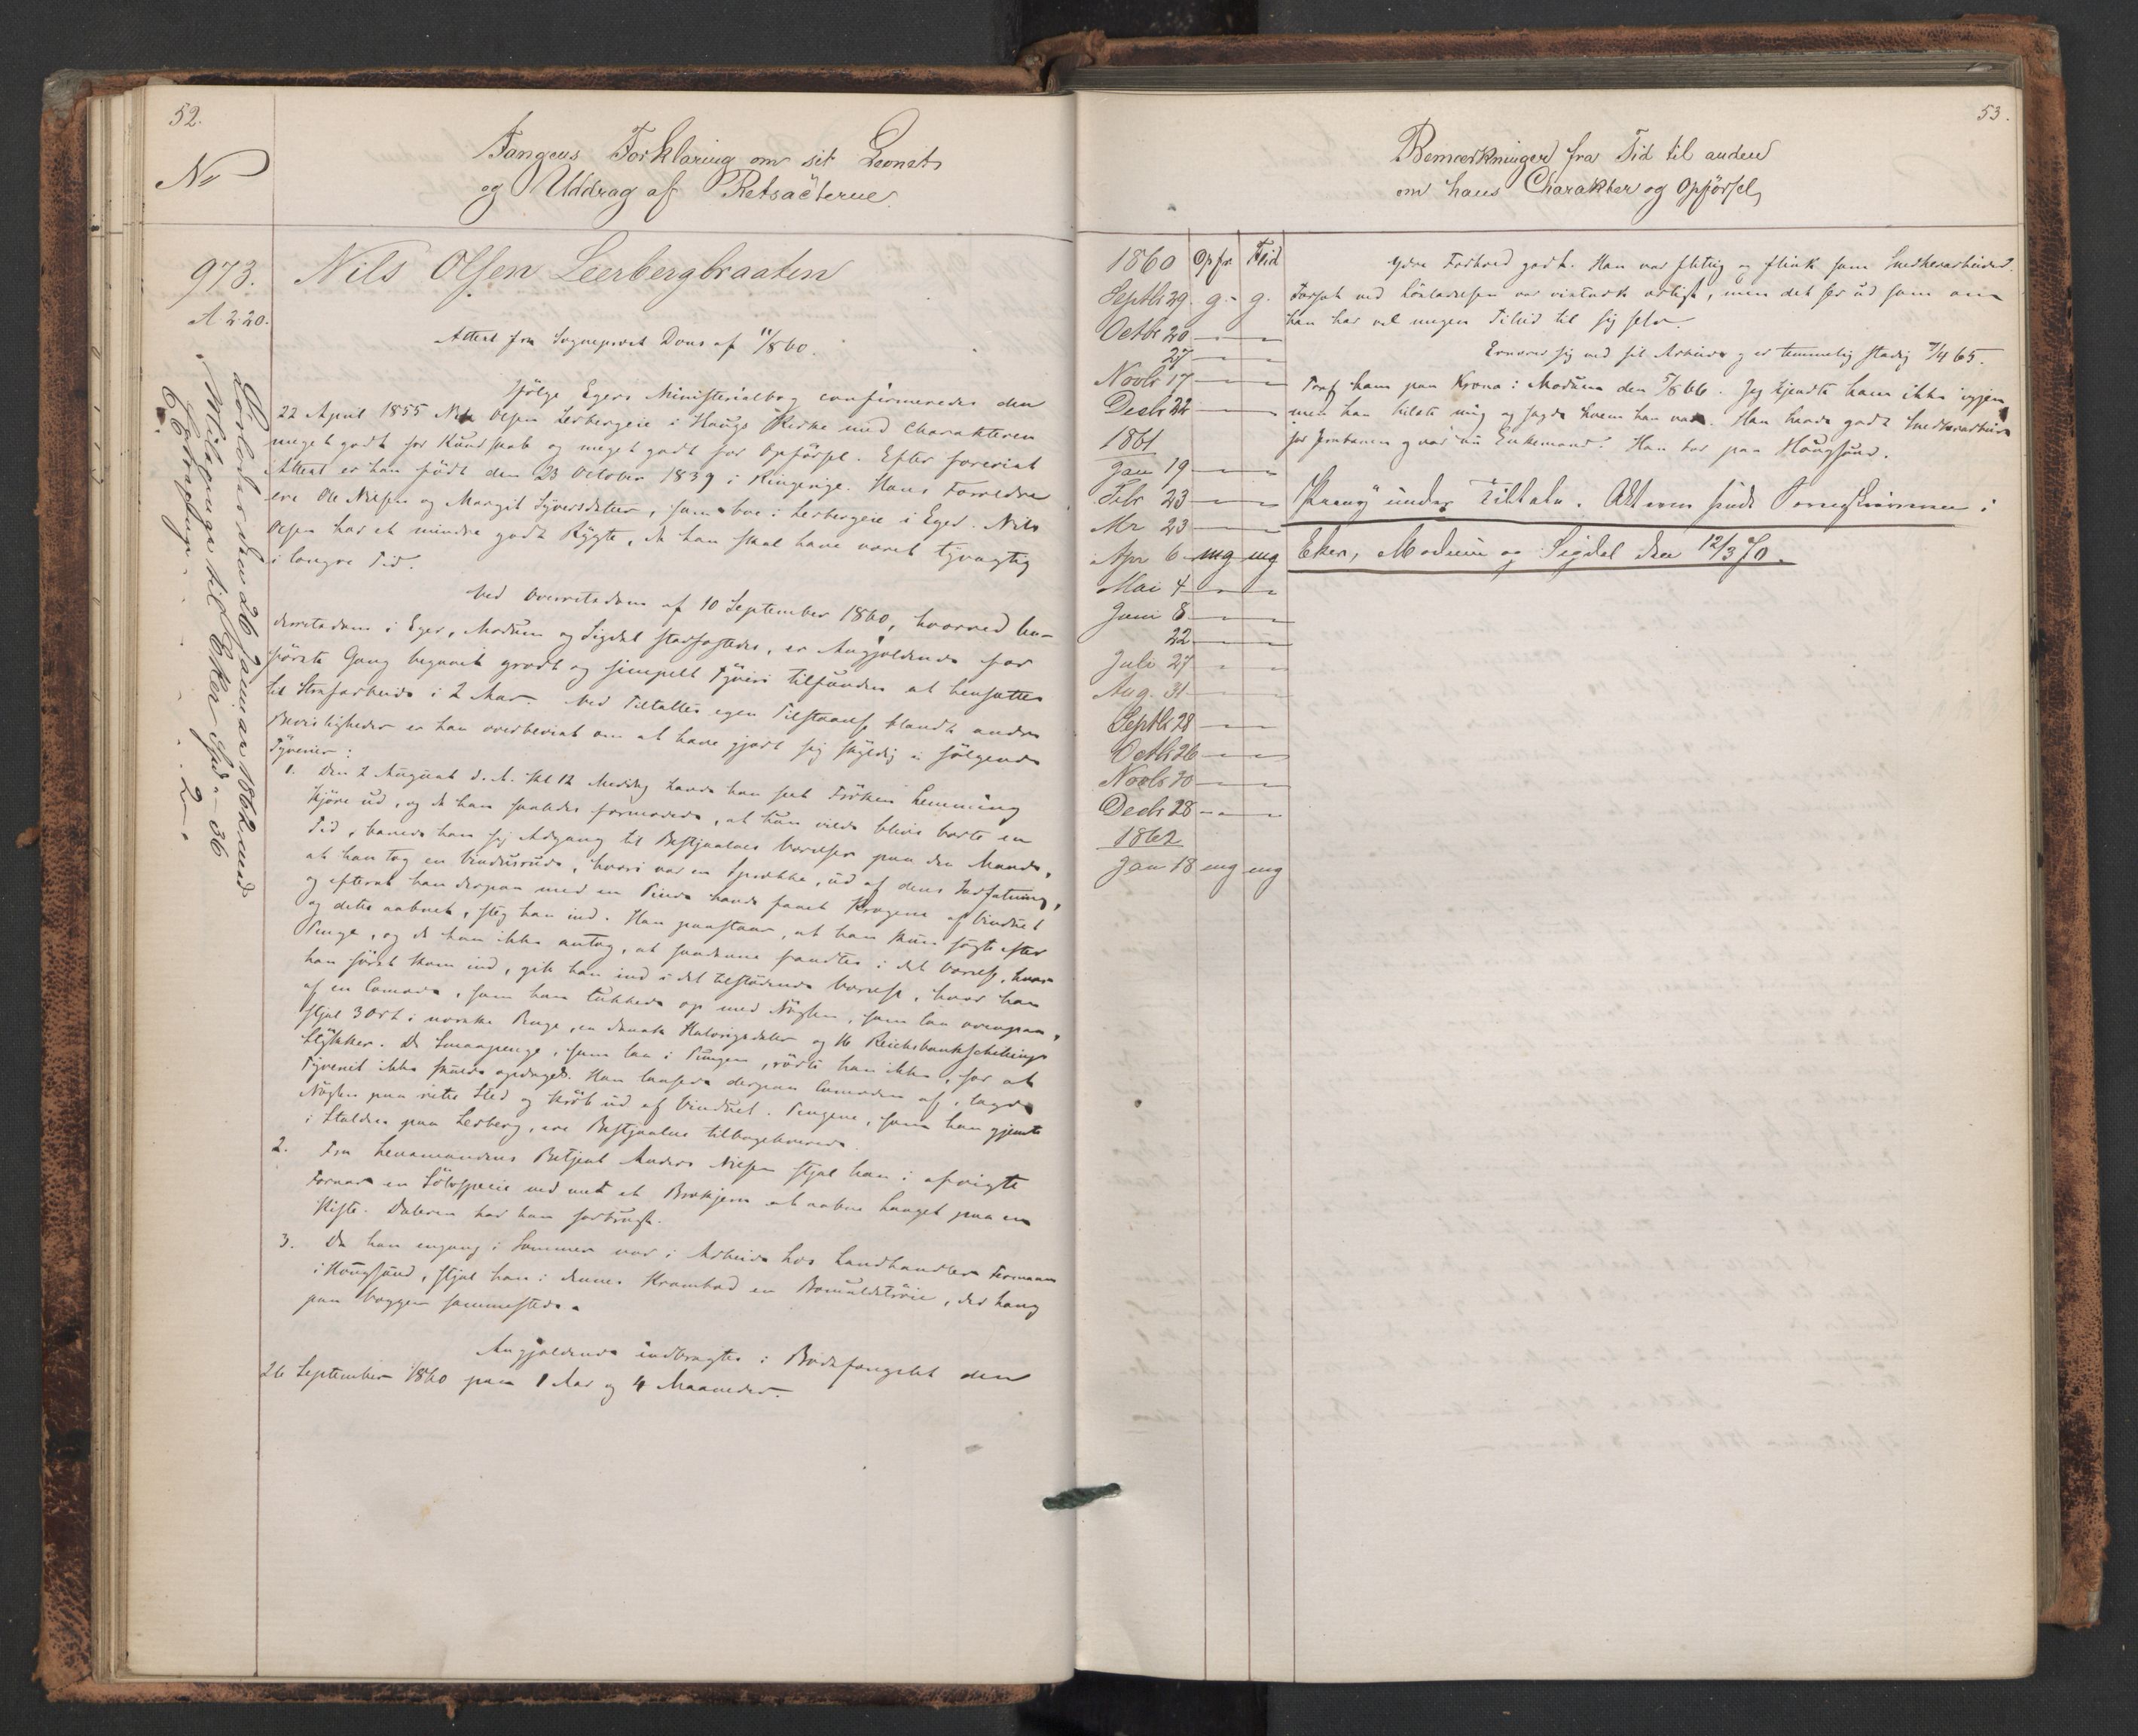 52.
No
Fangens Forklaring om sit Levnet
og Uddrag af Retsacterne
973.
A 2.20.
Nils Olsen Leerbergbraaten
Attest fra Sognepræst Dons af 11/8 60.
Ifölge Egers Ministerialbog confirmeredes den
22 April 1855 Nils Olsen Lerbergeie i Haugs Kirke med Charakteren
meget godt for Kundskab og meget godt for Opförsel. Efter foreviist
Attest er han födt den 23 October 1839 i Ringerige. Hans Forældre
ere Ole Nilsen og Margit Syversdatter, som boe i Lerbergeie i Eger. Nils
Olsen har et mindre godt Rygte, da han skal have været tyvagtig
i længre Tid.
Ved Overretsdom af 10 September 1860, hvorved Un-
derretsdom i Eger, Modum og Sigdal stadfæstedes, er Angjældende for
förste Gang begaaet grovt og simpelt Tyveri tilfunden at hensættes
til Strafarbeide i 2 Aar. Ved Tiltaltes egen Tilstaaelse blandt andre
Beviisligheder er han overbeviist om at have gjort sig skyldig i fölgende
Tyverier:
1. Den 2 August d. A. Kl 12 Middag havde han seet Fröken Lemming
kjöre ud, og da han saaledes formodede, at hun vilde blive borte en
Tid, banede han sig Adgang til Bestjaalnes Værelser paa den Maade,
at han tog en Vinduesrude, hvori var en Sprække, ud af dens Indfatning,
og efterat han derpaa med en Pind havde faaet Krogene af Vinduet
og dette aabnet, steg han ind. Han paastaar, at han kun sögte efter
Penge, og da han ikke antog, at saadanne fandtes i det Værelse, hvor
han först kom ind, gik han ind i det tilstödende Værelse, hvor han
af en Comode, som han lukkede op med Nöglen, som laa ovenpaa,
stjal 3 Ort i norske Penge, en dansk Halvrigsdaler og 16 Reichsbankschillings
Stykker. De Smaapenge, som laa i Pungen, rörte han ikke, for at
Tyveriet ikke skulde opdages. Han laasede derpaa Comoden af, lagde
Nöglen paa rette Sted og kröb ud af Vinduet. Pengene, som han gjemte
i Stalden paa Lerberg, ere Bestjaalne tilbageleverede.
2. Fra Lensmandens Betjent Anders Nilsen stjal han i afvigte
Foraar en Sölvspecie ved med et Brækjern at aabne Laaget paa en
Kiste. Daleren har han forbrugt.
3. Da han engang i Sommer var i Arbeide hos Landhandler Hermann
i Hougsund, stjal han i dennes Krambod en Bomuldströie, der hang
paa Væggen sammesteds.
Angjældende indbragtes i Bodsfængslet den
26 September 1860 paa 1 Aar og 4 Maaneder.
Lösladt den 26 Januar 1862 med
Militairpenge til Eker Spd. " - 36
Fortjeneste " - 2 - "
66.
53.
Bemærkninger fra Tid til anden
om hans Charakter og Opförsel
1860 Opf. Flid
Septbr 29. g. - g.
Octbr 20 — —
27 — —
Novbr 17 — —
Decbr 22 — —
1861
Jan 19 — —
Febr 23 — —
Mr 23 — —
Apr 6 mg mg
Mai 4 — —
Juni 8 — —
22 — —
Juli 27 — —
Aug. 31 — —
Septbr 28 — —
Octbr 26 — —
Novbr 30 — —
Decbr 28 — —
1862
Jan 18 mg mg
Ydre Forhold godt. Han var flittig og flink som Snedkerarbeider.
Forsæt ved Lösladelsen var vistnok ærligt, men det ser ud som om
han har vel megen Tillid til sig selv.
Ernærer sig ved sit Arbeide og er temmelig stadig 7/4 65.
Traf ham paa Krona i Modum den 5/8 66. Jeg kjendte ham ikke igjen
men han hilste mig og sagde hvem han var. Han havde godt Snedkerarbeide
for Jernbanen og var nu Enkemand. Han bor paa Hougsund.
Paany under Tiltale. Akterne sendt Sorenskriveren i
Eker, Modum og Sigdal den 12/3 70.